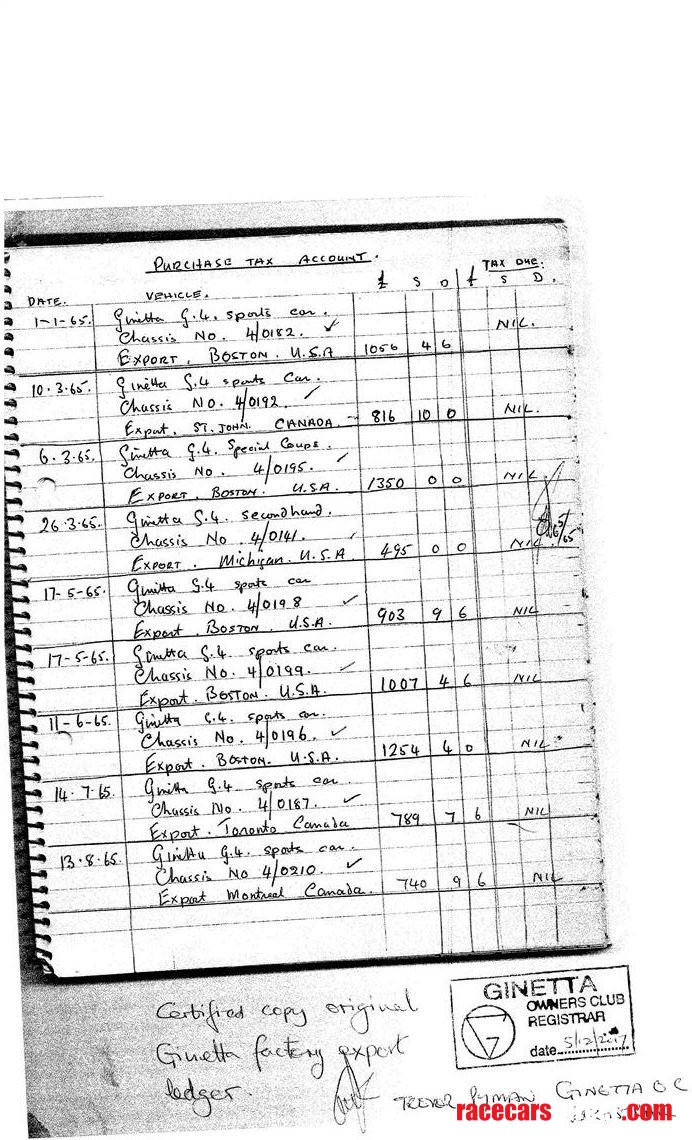 PURCHASE TAX ACCOUNT.
DATE. VEHICLE. £ S D £ TAX DUE. S D.
1-1-65. Ginetta G.4. sports car.
Chassis No. 4/0182. ✓ NIL.
EXPORT. BOSTON. U.S.A 1056 4 6
10.3.65. Ginetta G.4 sports car.
Chassis No. 4/0192. ✓
Export. ST. JOHN. CANADA. 816 10 0 NIL.
6.3.65. Ginetta G.4. Special Coupe.
Chassis No. 4/0195. ✓
EXPORT. BOSTON. U.S.A. 1350 0 0 NIL
26.3.65. Ginetta G.4. secondhand.
Chassis No. 4/0141.
EXPORT. Michigan. U.S.A 495 0 0 NIL.
17-5-65. Ginetta G.4 sports car
Chassis No. 4/0198 ✓
Export. BOSTON. U.S.A. 903 9 6 NIL
17-5-65. Ginetta G.4. sports car.
Chassis No. 4/0199. ✓
Export. BOSTON. U.S.A. 1007 4 6 NIL
11-6-65. Ginetta G.4. sports car.
Chassis No. 4/0196. ✓
Export. Boston. U.S.A. 1254 4 0 NIL
14.7.65. Ginetta G.4 sports car.
Chassis No. 4/0187. ✓
Export. Toronto Canada 789 7 6 NIL
13.8.65. Ginetta G.4. sports car.
Chassis No 4/0210. ✓
Export Montreal Canada. 740 9 6 NIL
Certified copy original
Ginetta factory export
ledger.
GINETTA
OWNERS CLUB
REGISTRAR
date 5/12/2017
TREVOR PYMAN GINETTA O C
racecars .com